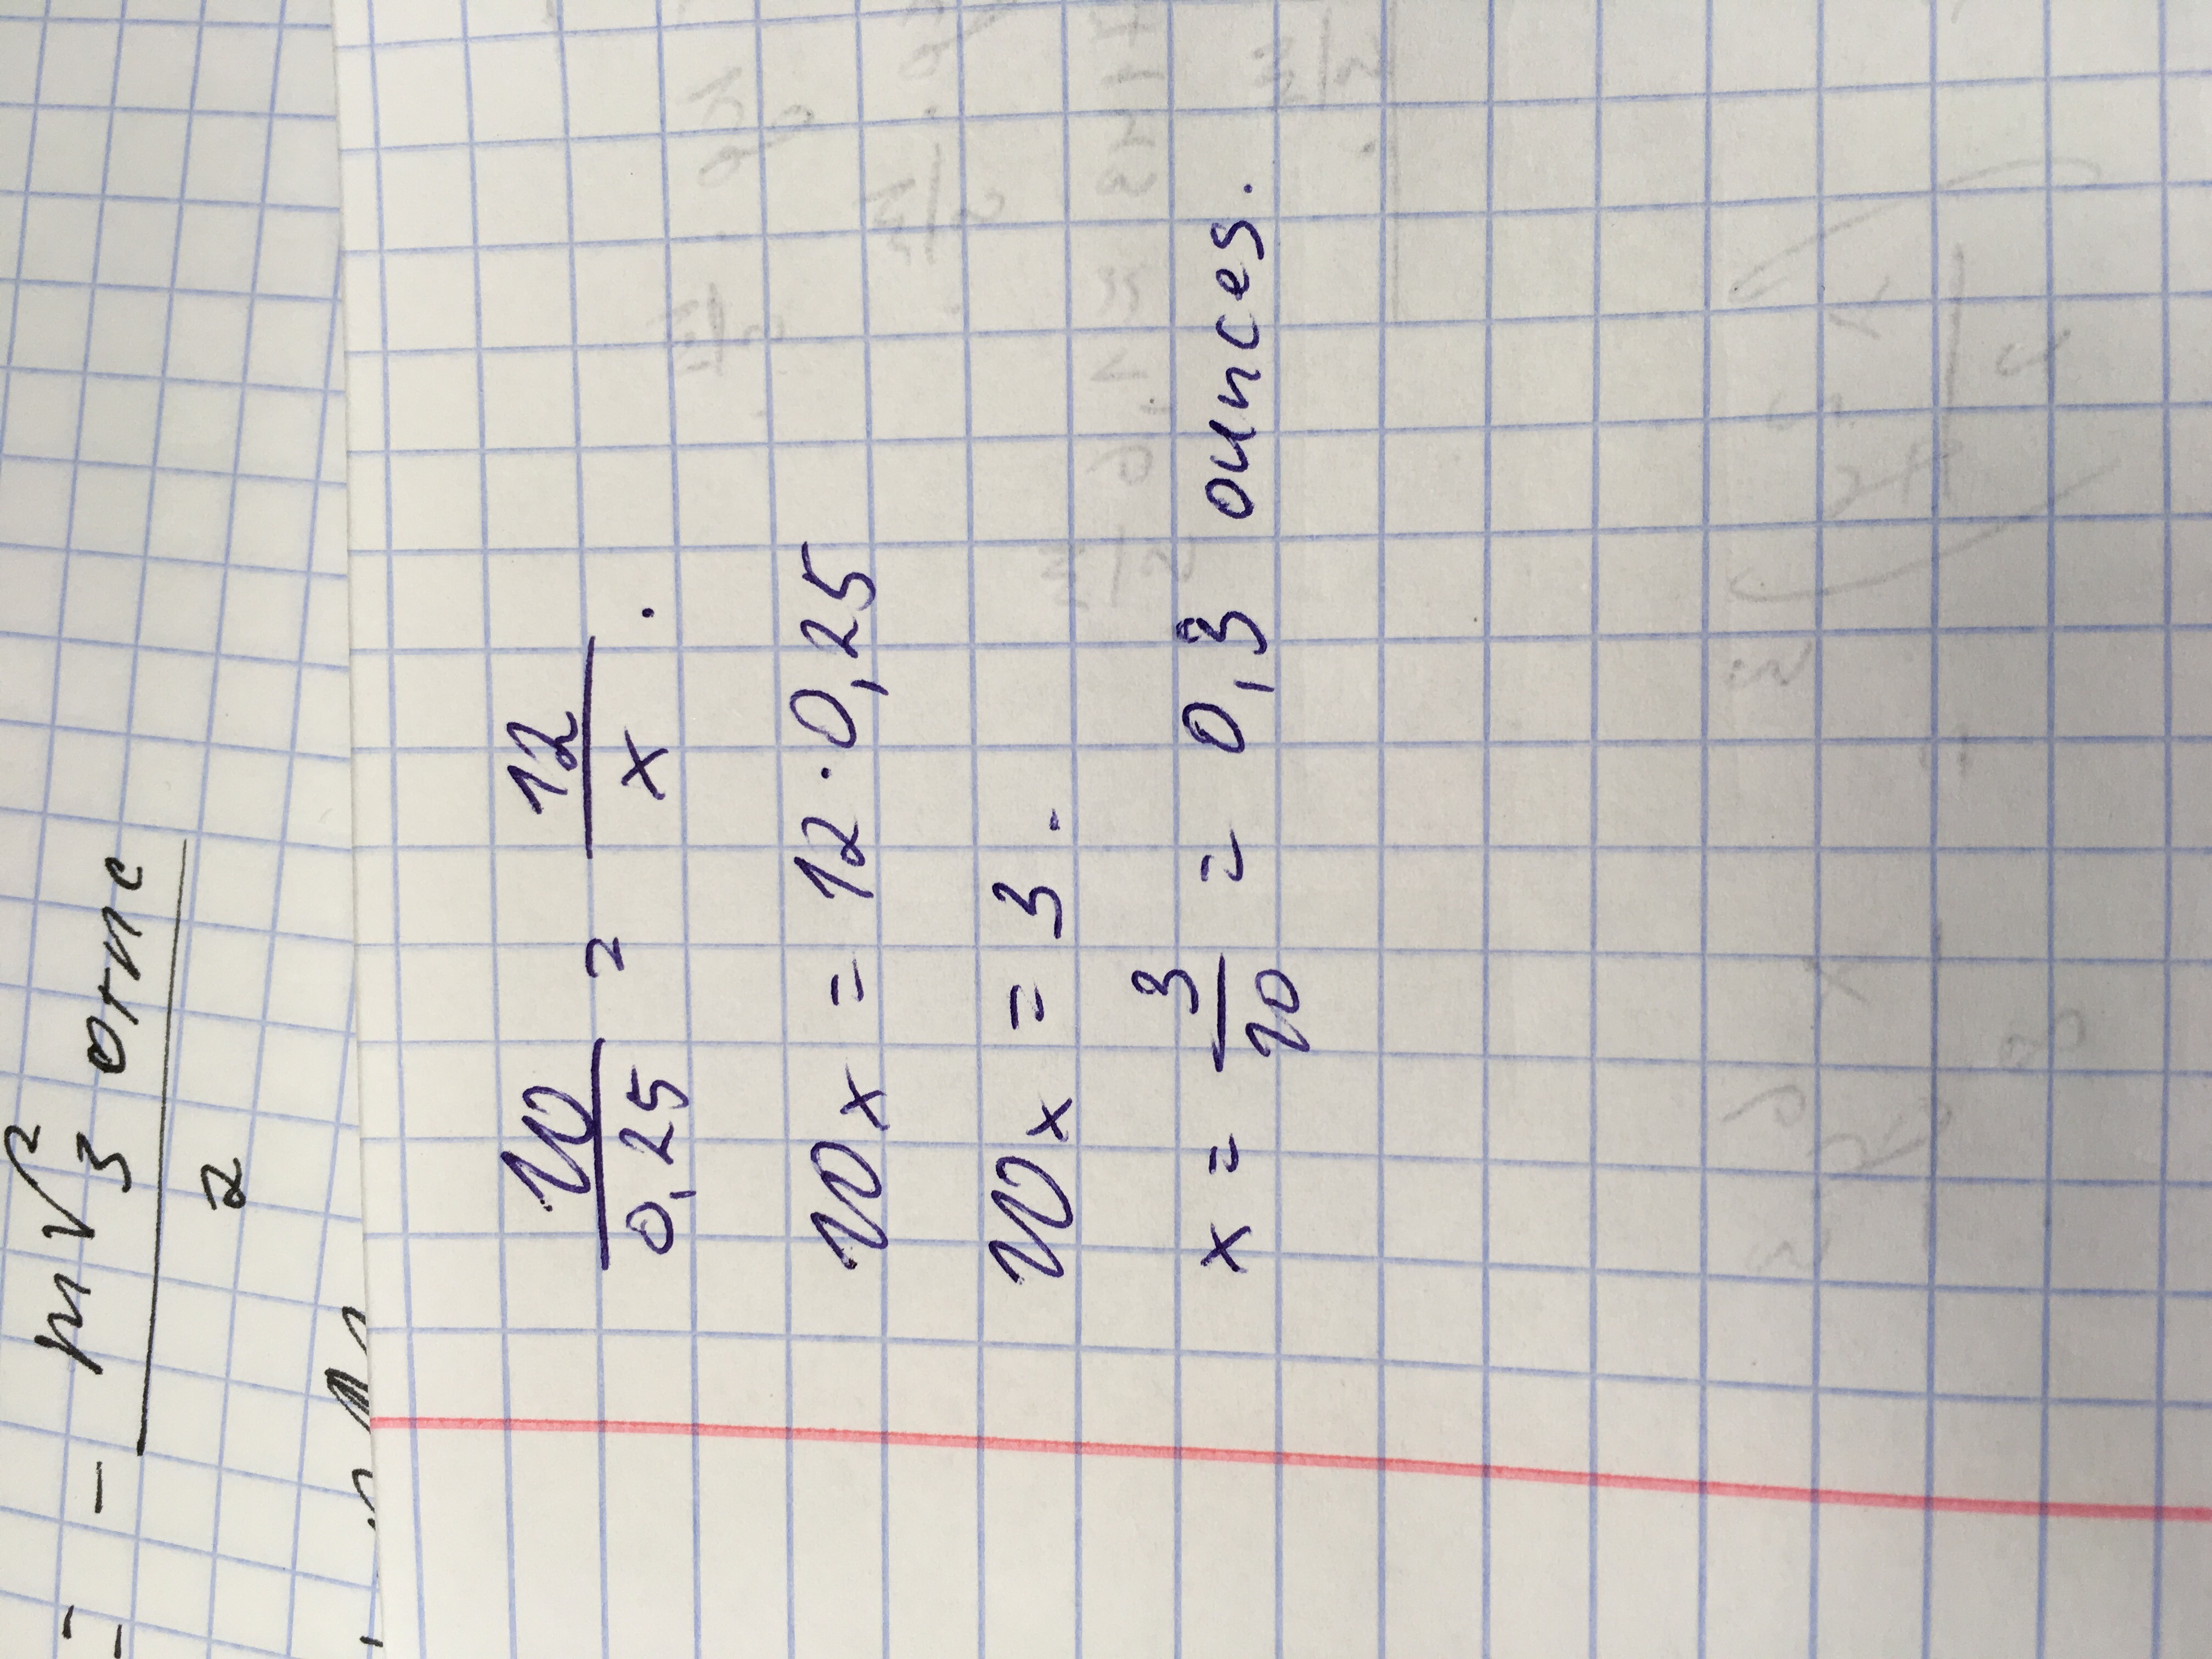 = - mV²₃ отн
2
10/0,25 = 12/x .
10x = 12 · 0,25
10x = 3 .
x = 3/10 = 0,3 ounces.